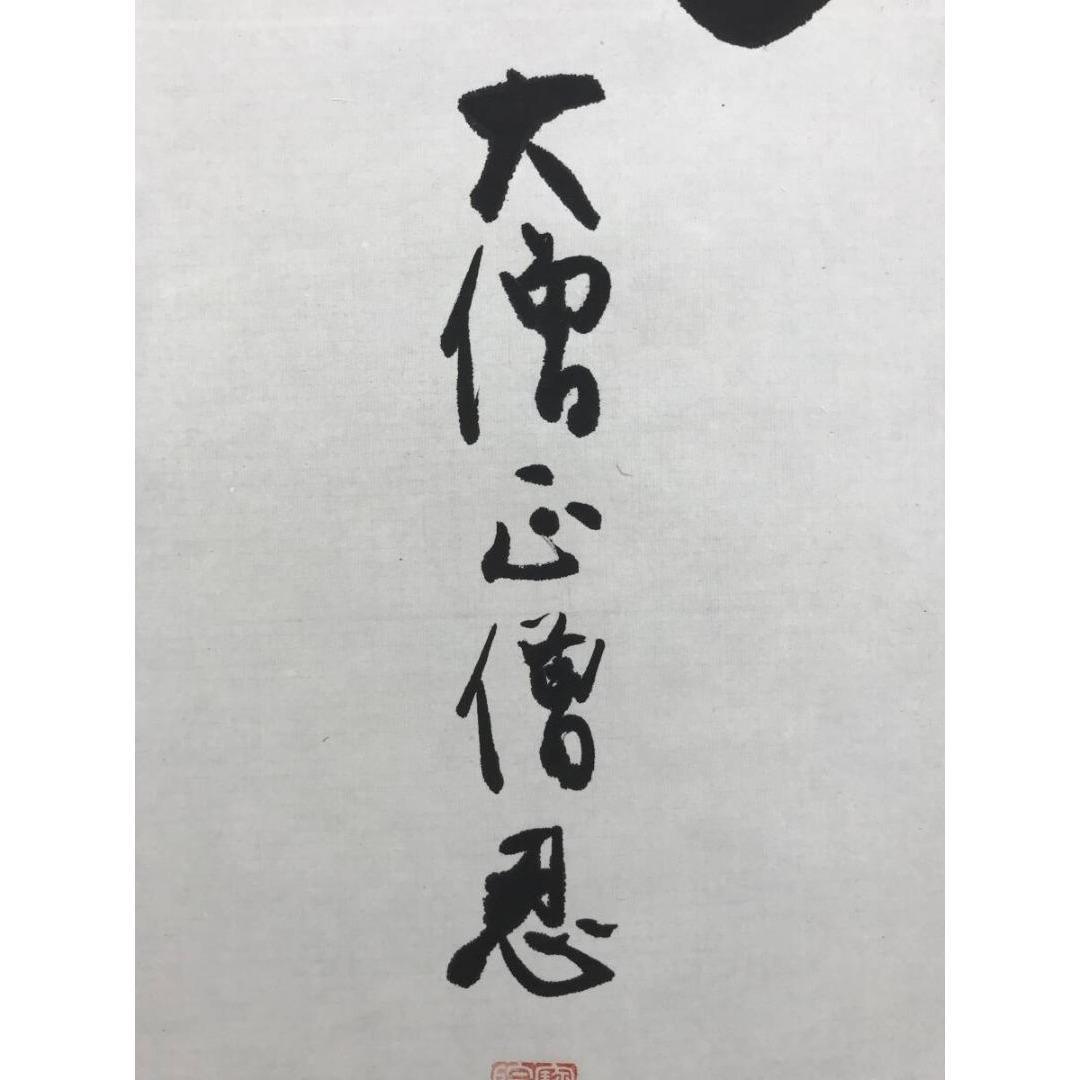 大僧正僧忍